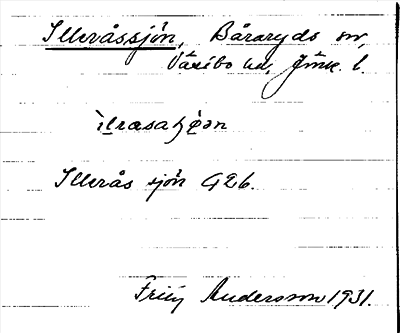 Illeråssjön, Båraryds sn,
Västbo hd, Jönk. l.
Illerås sjön G26.
Fritz Andersson 1931.